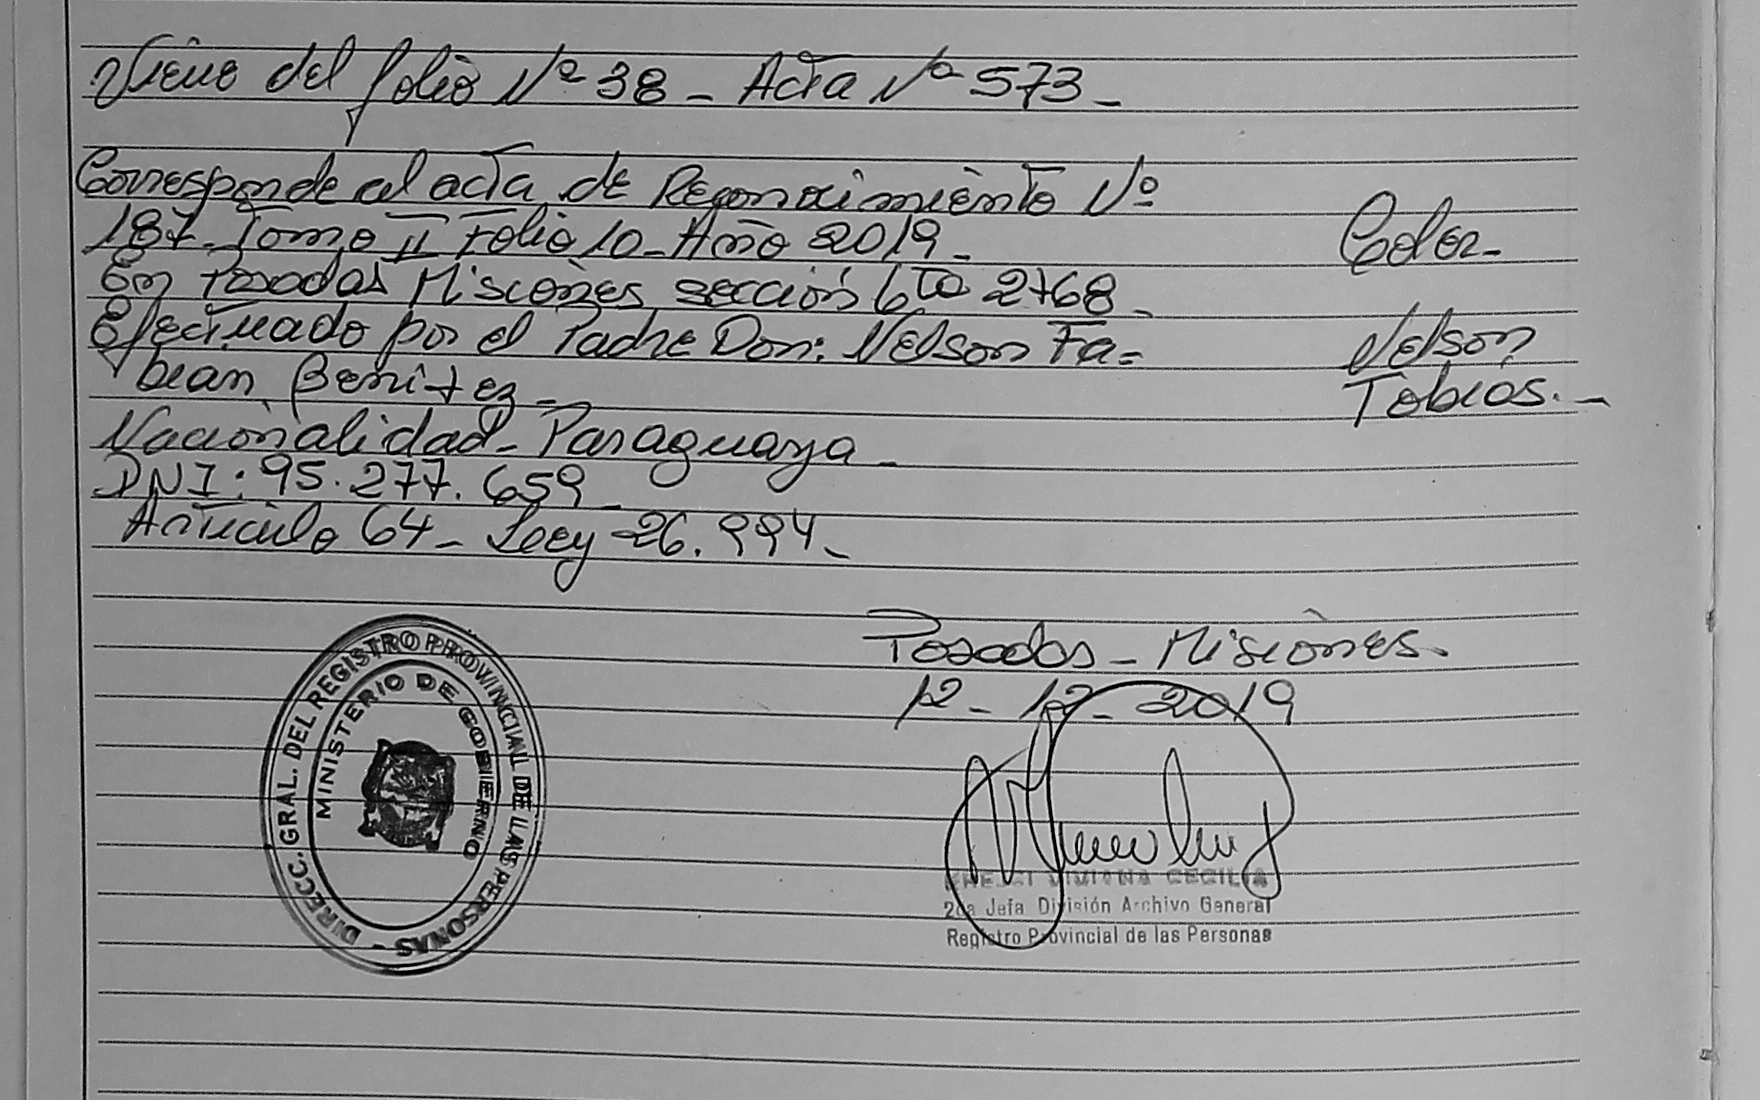 Viene del folio Nº 38 - Acta Nº 573 -
Corresponde al acta de Reconocimiento Nº
187 - Tomo II Folio 10 - Año 2019 -
En Posadas Misiones sección 6ta 2768 -
Efectuado por el Padre Don: Nelson Fa=
bian Benitez -
Nacionalidad - Paraguaya -
DNI: 95.277.659 -
Articulo 64 - Ley 26.994 -
Nelson
Tobias. -
Posadas - Misiones.
12 - 12 - 2019
DIRECC. GRAL. DEL REGISTRO PROVINCIAL DE LAS PERSONAS -
MINISTERIO DE GOBIERNO
VIVIANA CECILIA
2da Jefa División Archivo General
Registro Provincial de las Personas